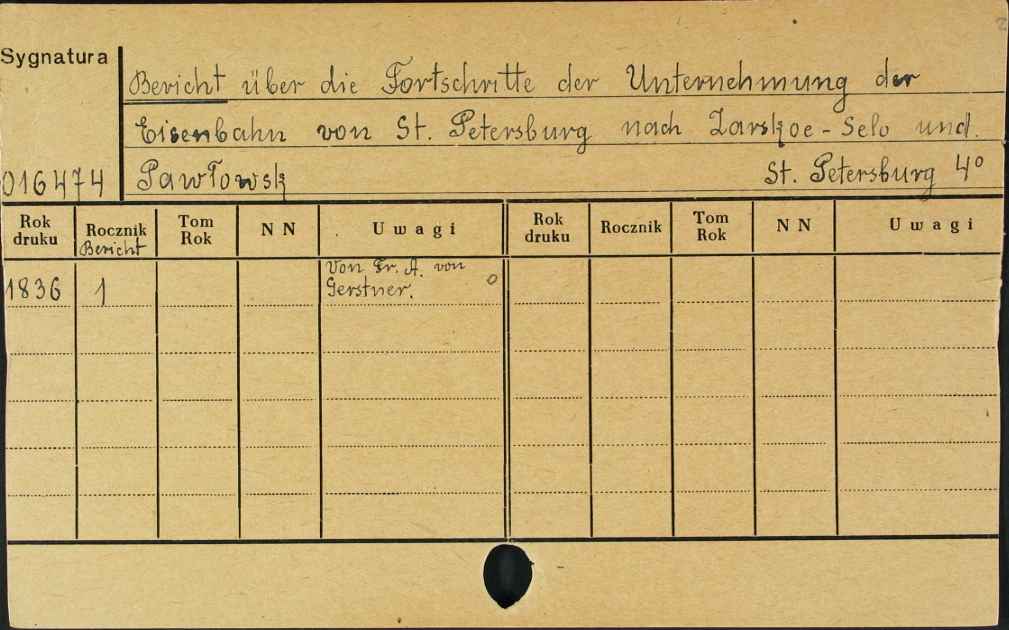 Sygnatura
Bericht über die Fortschritte der Unternehmung der
Eisenbahn von St. Petersburg nach Zarskoe-Selo und.
016474 Pawłowsk St. Petersburg 4°
Rok druku Rocznik Bericht Tom Rok NN Uwagi Rok druku Rocznik Tom Rok NN Uwagi
1836 1 Von Fr. A. von
Gerstner. 0